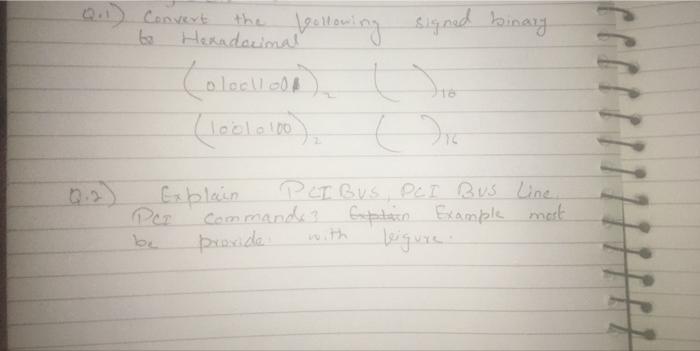 Q.1) Convert the following signed binary
to Hexadecimal
(01001100)₂ ( )₁₆
(10010100)₂ ( )₁₆
Q.2) Explain PCI BUS, PCI Bus Line,
PCI commands? Example most
be provide with feigure.